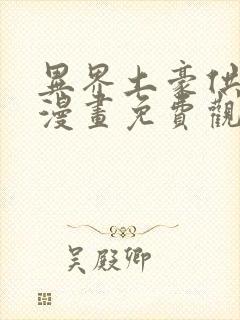 異界土豪供
漫畫免費觀
吴殿卿